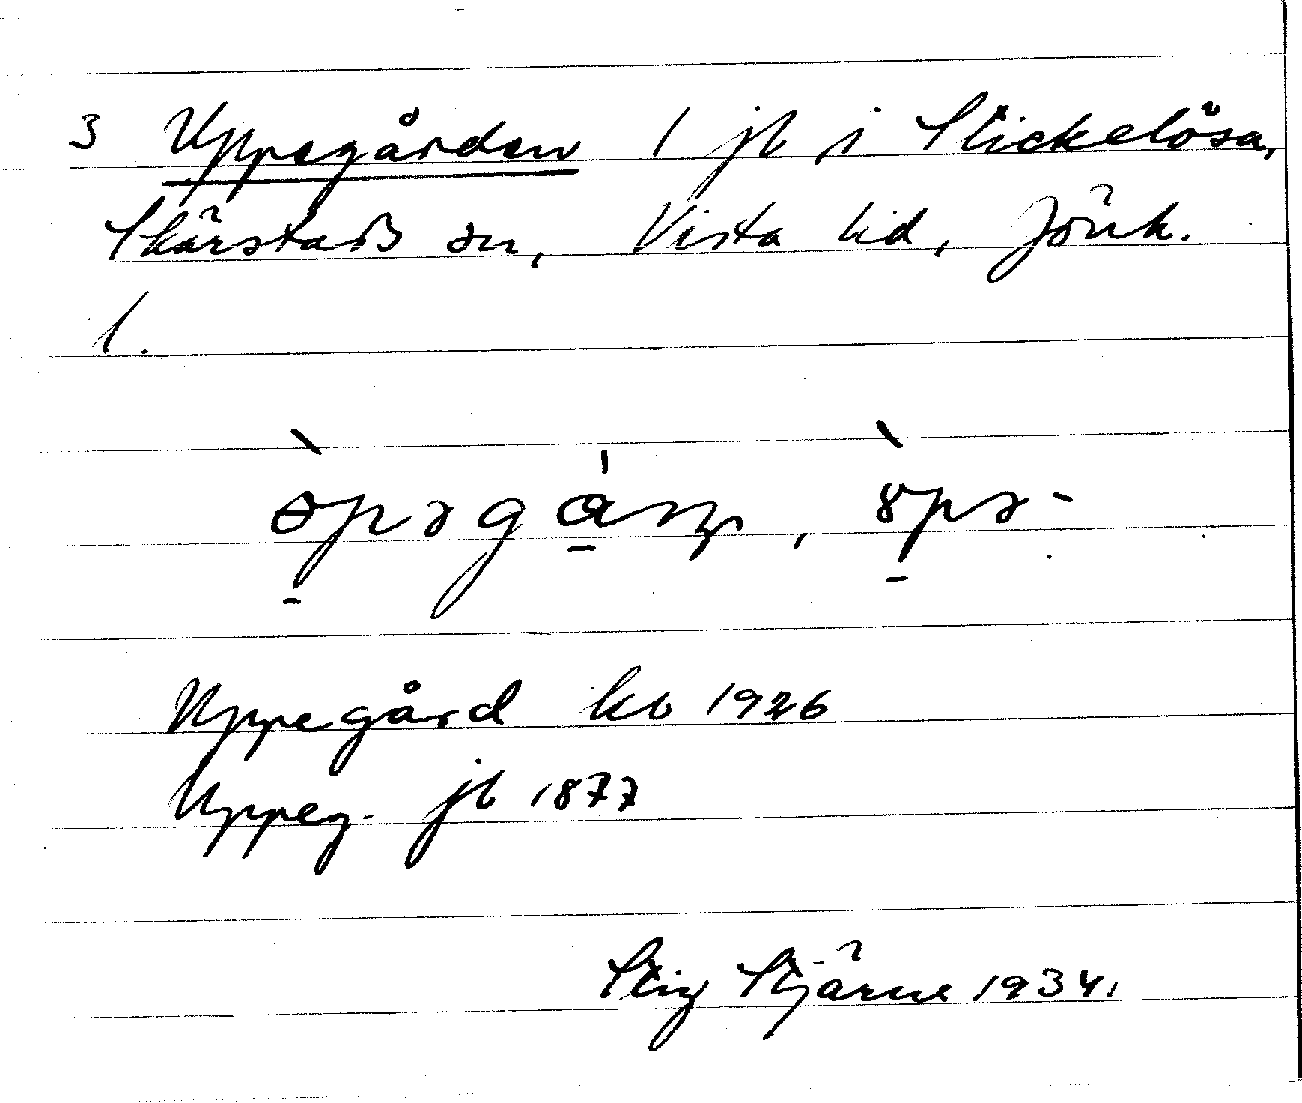 3 Uppegården 1 jb i Stickelösa,
Skärstads sn, Vista hd, Jönk.
l.
Uppegård kb 1926
Uppeg. jb 1877
Stig Stjärne 1934.